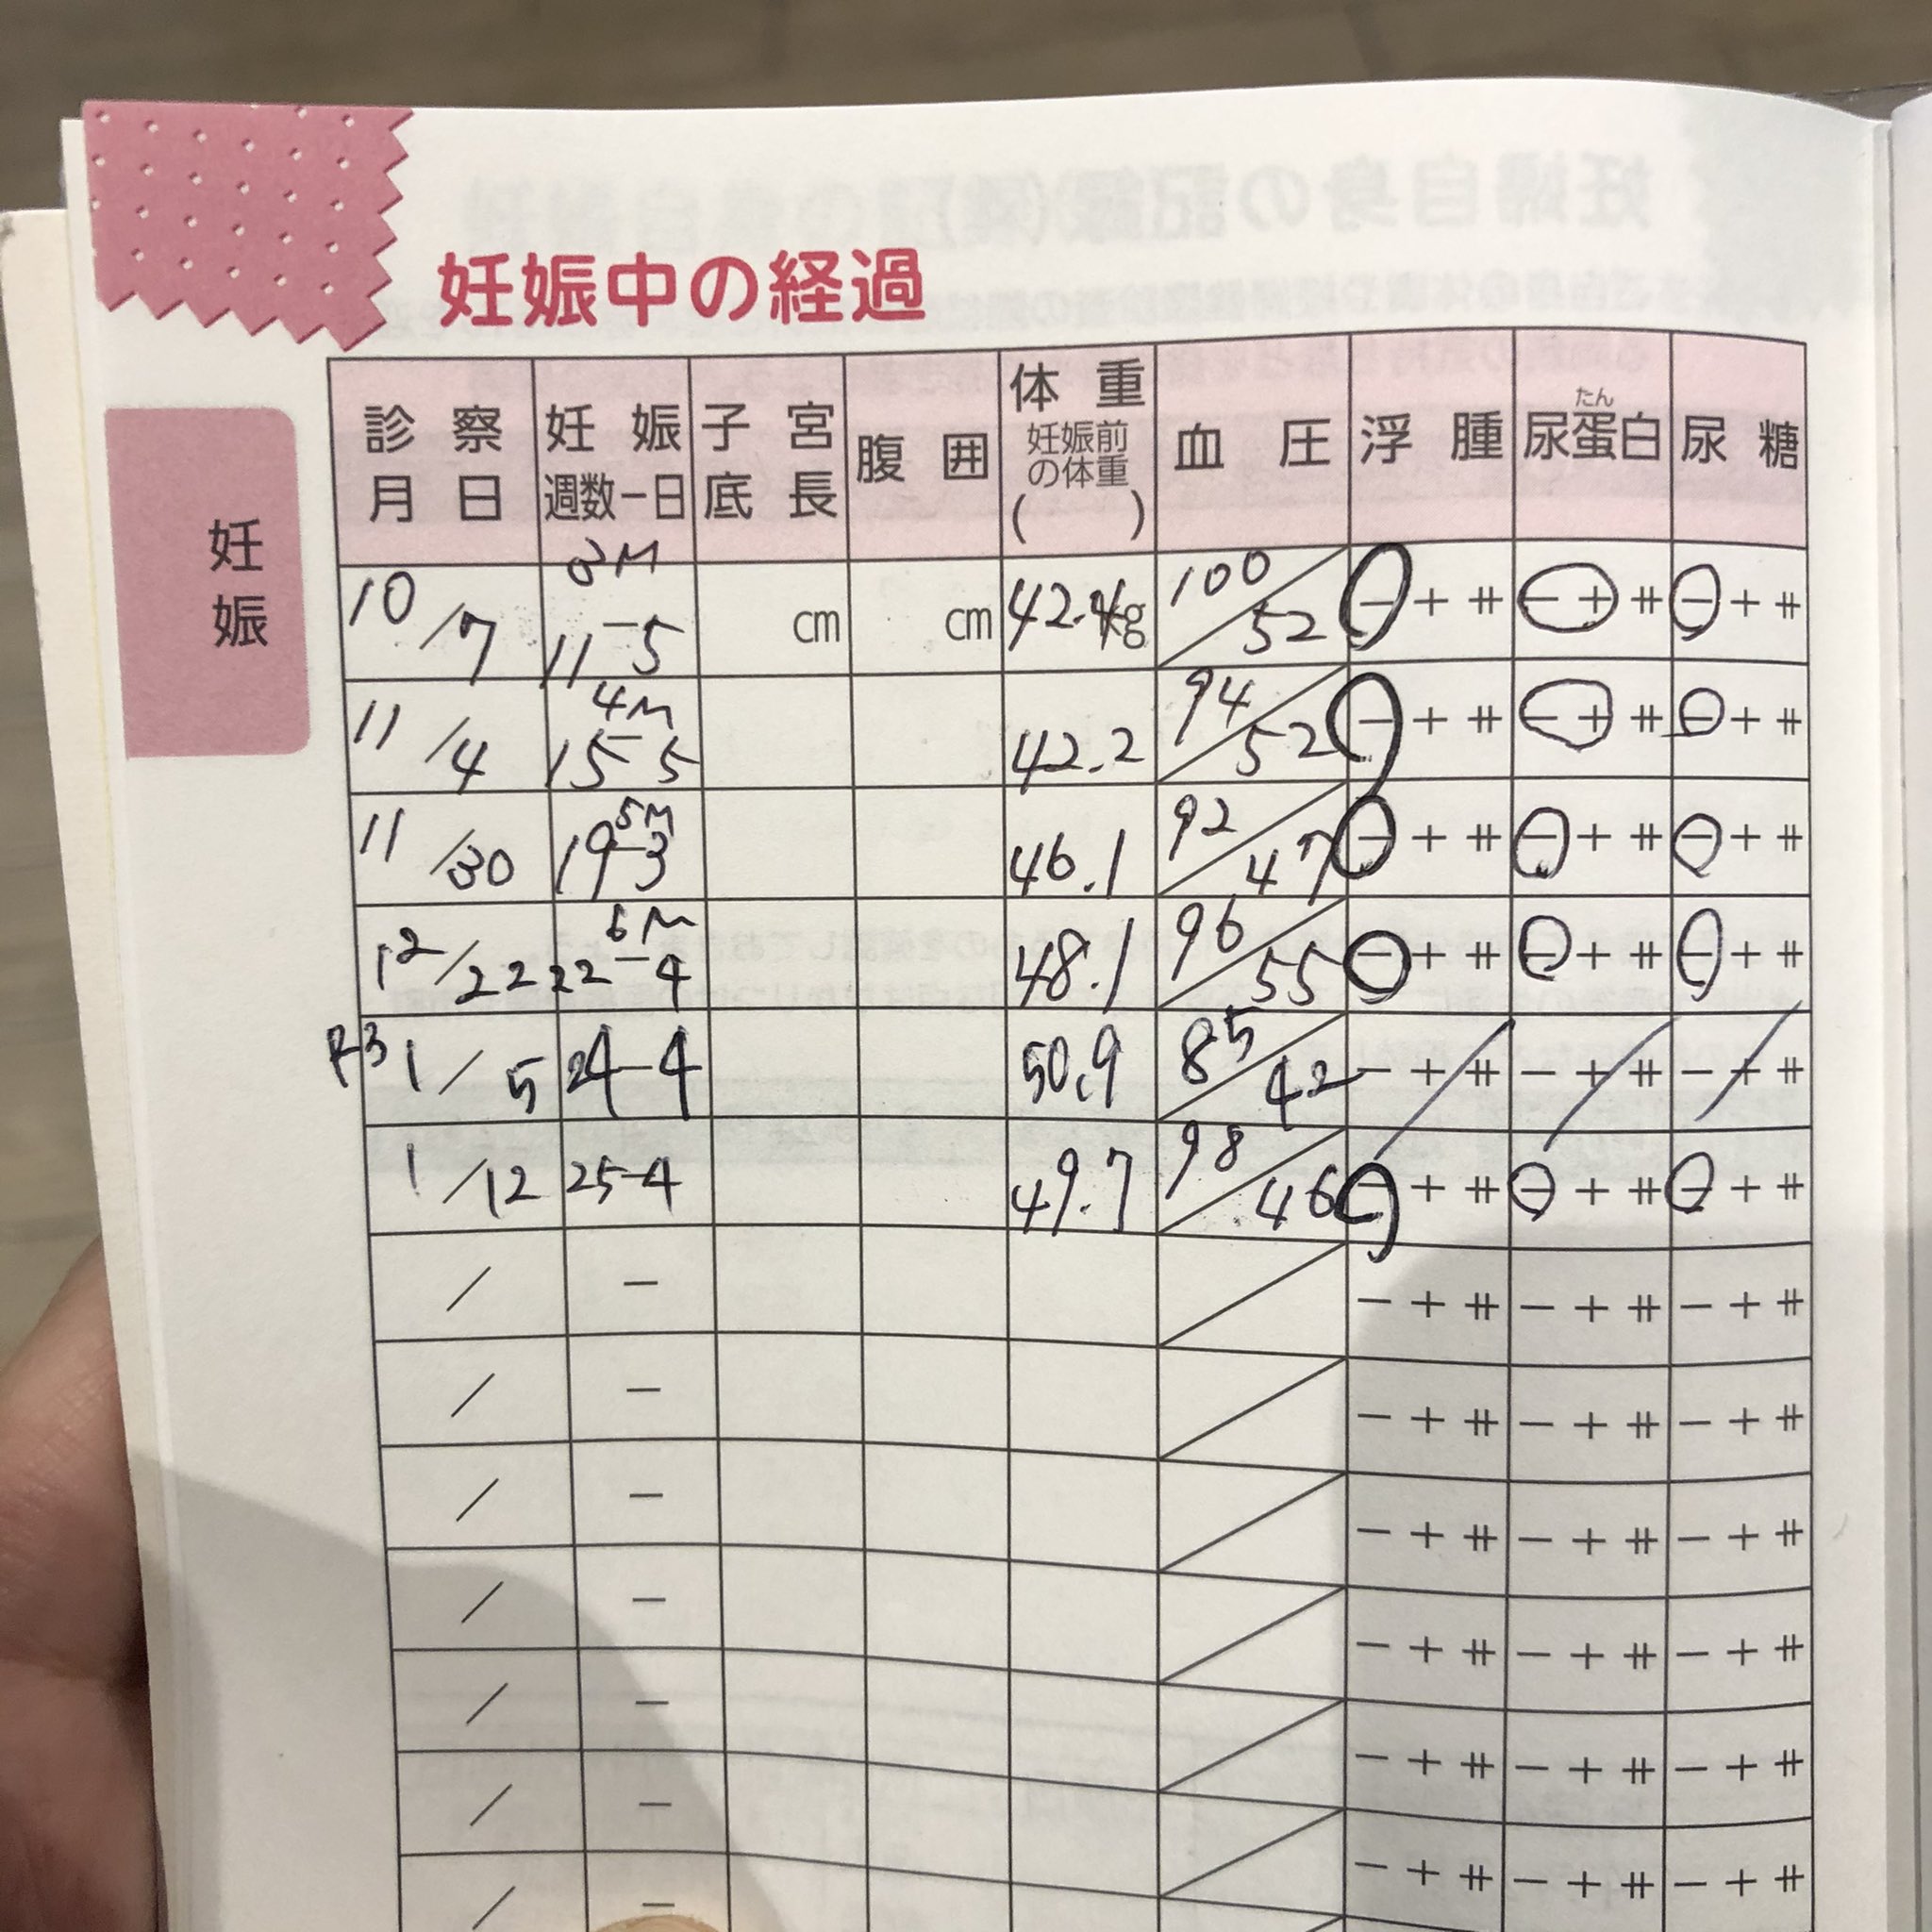 妊娠中の経過
妊娠
診察月日 妊娠週数－日 子宮底長 腹囲 体重 妊娠前の体重( ) 血圧 浮腫 尿蛋白 たん 尿糖
3M
10/7 11-5 cm cm 42.4kg 100/52 － + ⧺ － + ⧺ － + ⧺
4M
11/4 15-5 42.2 94/52 － + ⧺ － + ⧺ － + ⧺
5M
11/30 19-3 46.1 92/47 － + ⧺ － + ⧺ － + ⧺
6M
12/22 22-4 48.1 96/55 － + ⧺ － + ⧺ － + ⧺
R3 1/5 24-4 50.9 85/42 － + ⧺ － + ⧺ － + ⧺
1/12 25-4 49.7 98/46 － + ⧺ － + ⧺ － + ⧺
/ － － + ⧺ － + ⧺ － + ⧺
/ － － + ⧺ － + ⧺ － + ⧺
/ － － + ⧺ － + ⧺ － + ⧺
/ － － + ⧺ － + ⧺ － + ⧺
/ － － + ⧺ － + ⧺ － + ⧺
/ － － + ⧺ － + ⧺ － + ⧺
/ －